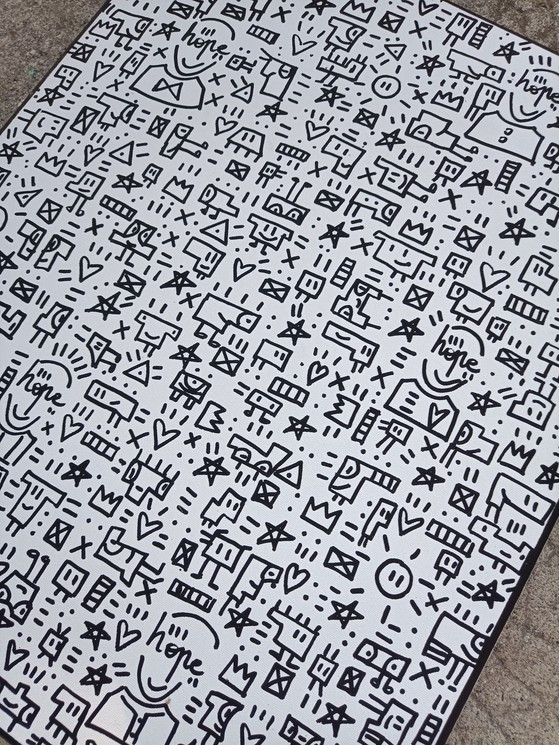 hope
hope
hope
hope
hope